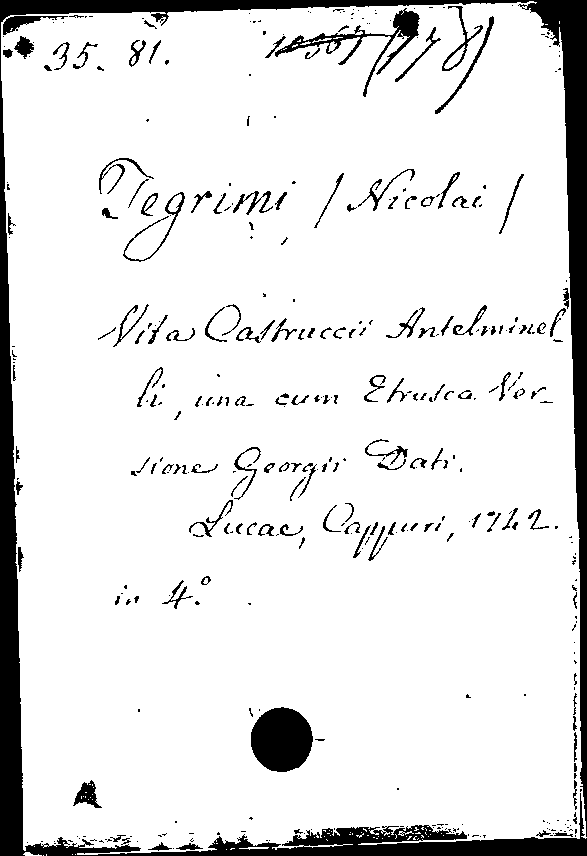 35. 81. (178)
Tegrimi / Nicolai /
Vita Castruccii Antelminel_
li, una cum Etrusca Ver_
sione Georgii Dati.
Lucae, Cappuri, 1742.
in 4.º